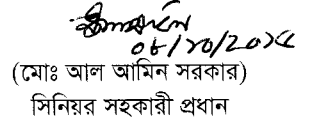 ০৮/১০/২০১৫
(মোঃ আল আমিন সরকার)
সিনিয়র সহকারী প্রধান